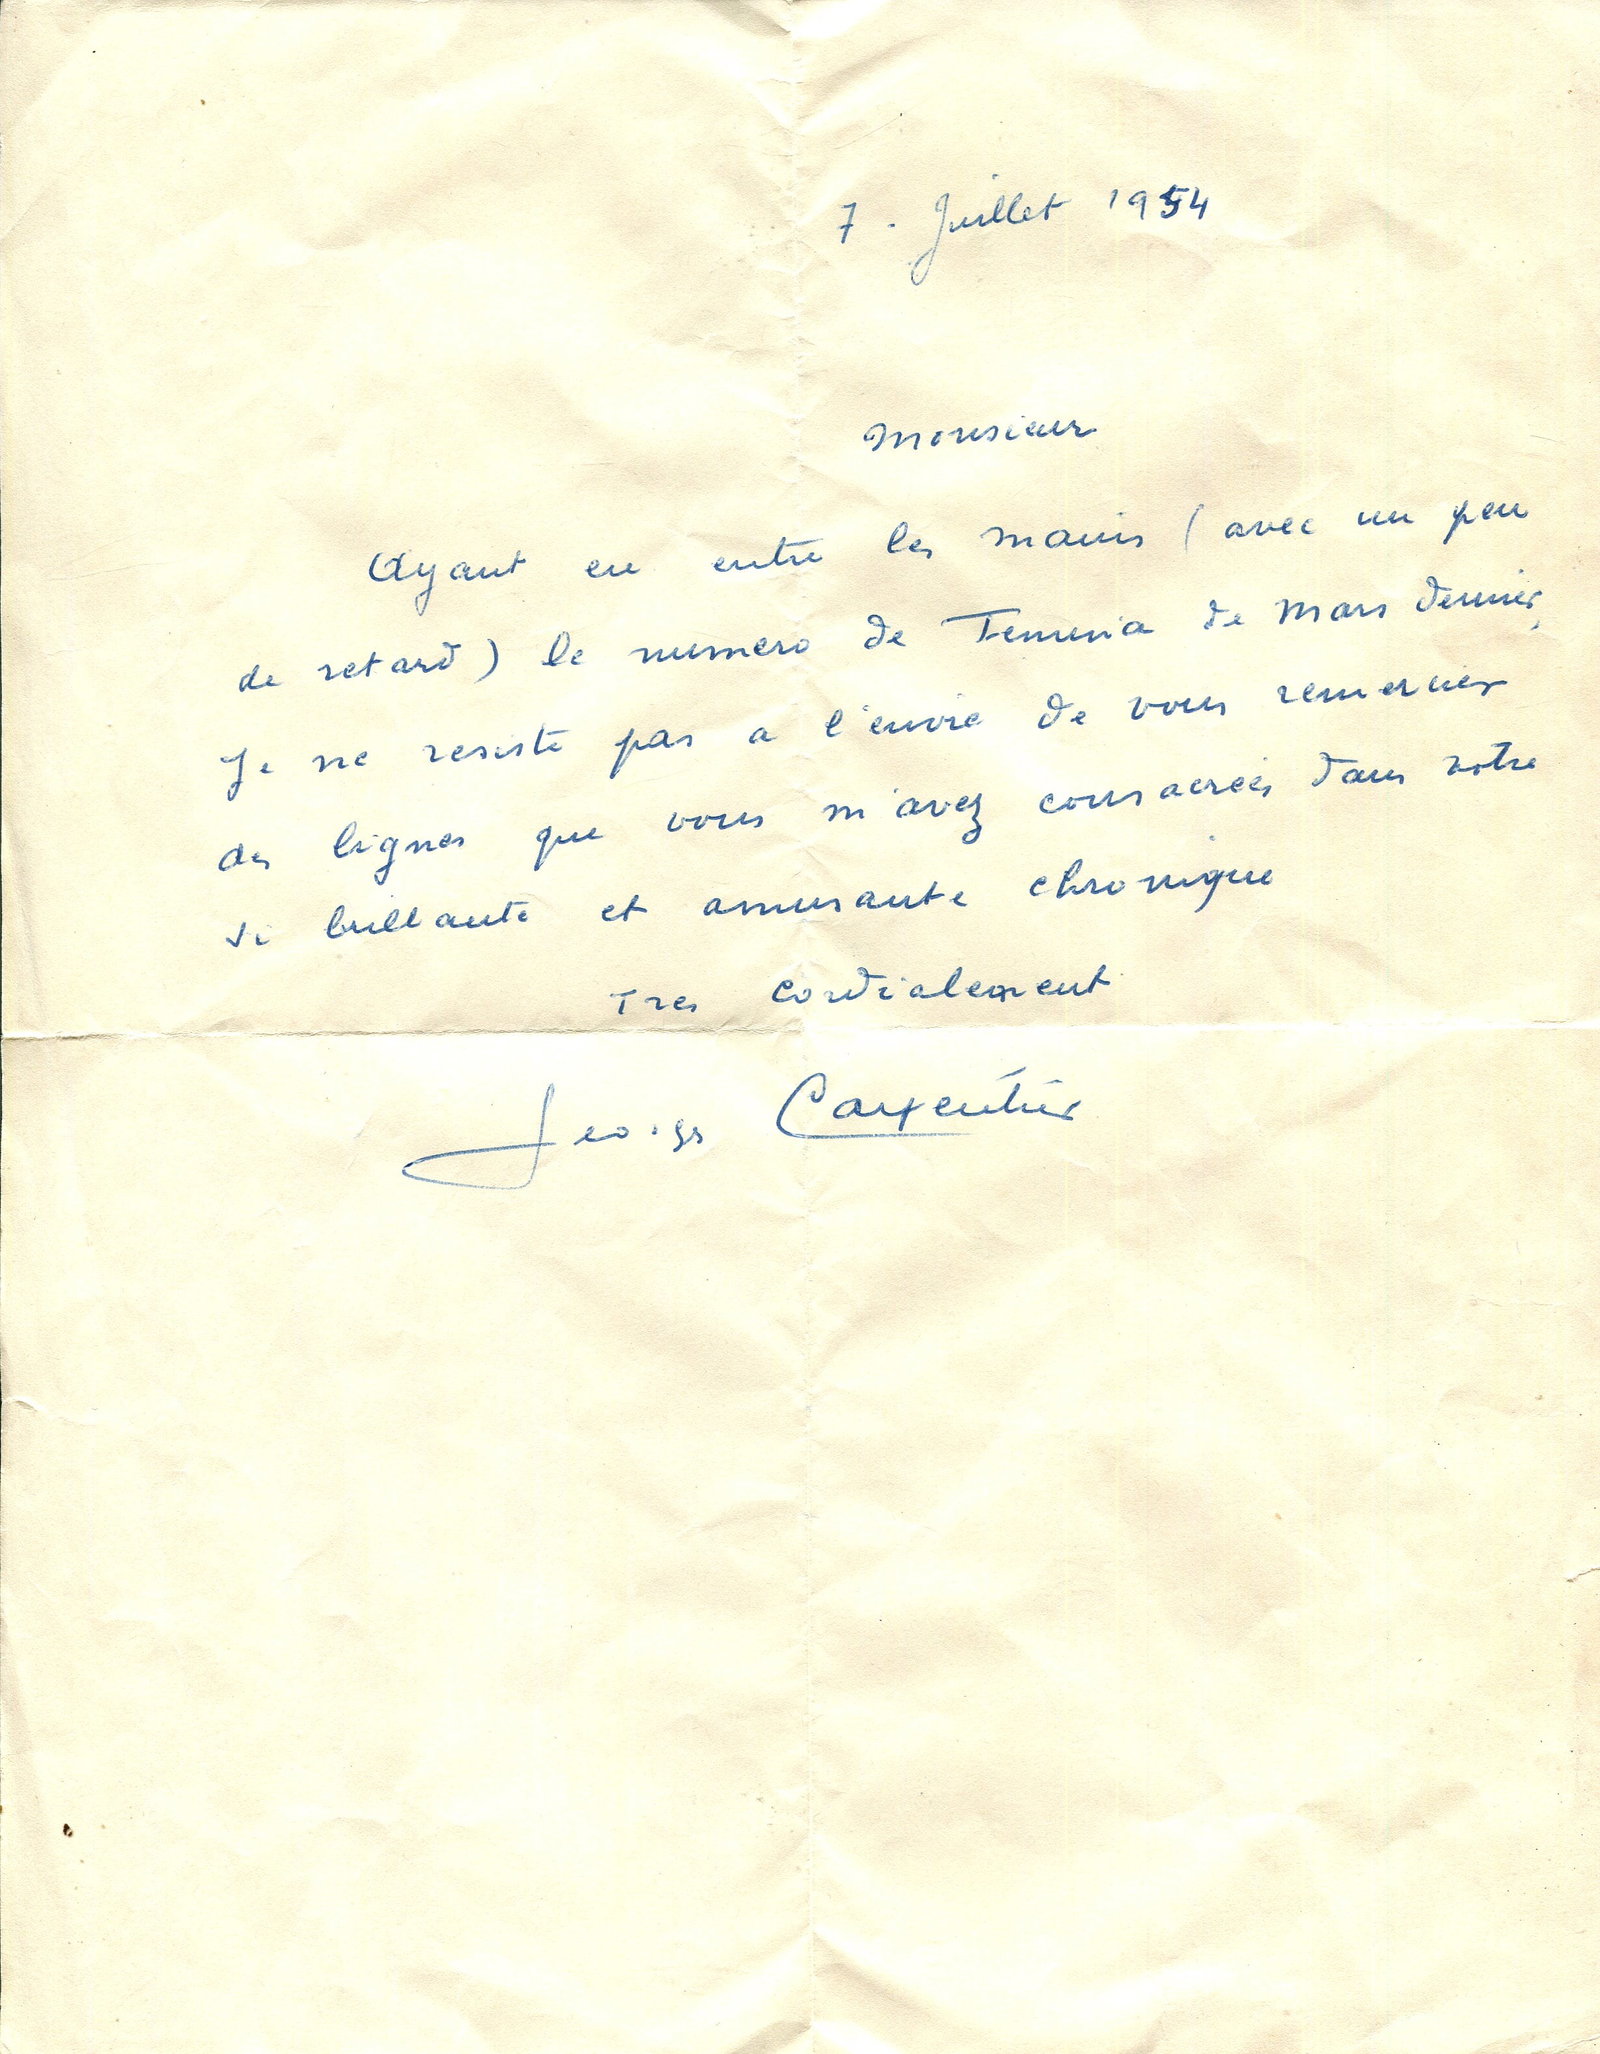 7 - Juillet 1954
Monsieur
Ayant eu entre les mains (avec un peu
de retard) le numero de Femina de Mars dernier,
Je ne resiste pas a l'envie de vous remercier
des lignes que vous m'avez consacrées dans votre
si brillante et amusante chronique
Tres cordialement
Georges Carpentier